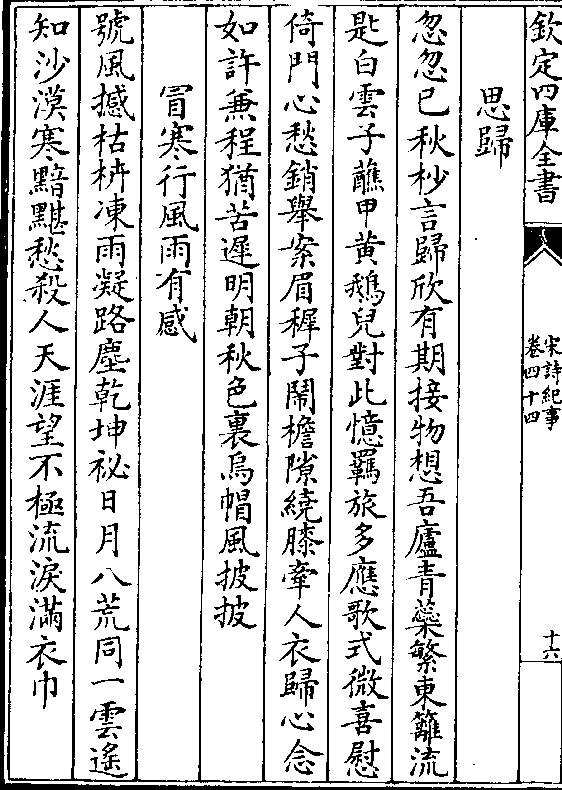 欽定四庫全書
宋詩紀事
卷四十四
十六
思歸
忽忽已秋杪言歸欣有期接物想吾廬青蘂繁東籬流
匙白雲子蘸甲黄鵝兒對此憶羈旅多應歌式微喜慰
倚門心愁銷舉案眉穉子鬧檐隙繞膝牽人衣歸心念
如許兼程猶苦遲明朝秋色裏烏帽風披披
冒寒行風雨有感
號風撼枯枿凍雨凝路塵乾坤袐日月八荒同一雲遙
知沙漠寒黯黮愁殺人天涯望不極流淚滿衣巾